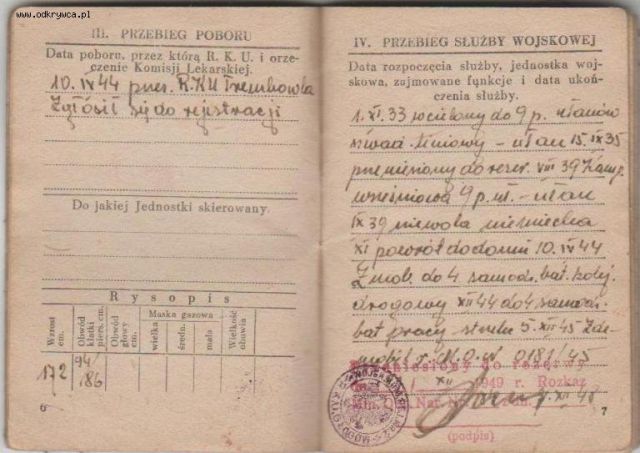 www.odkrywca.pl
III. PRZEBIEG POBORU
Data poboru, przez którą R. K. U. i orze-
czenie Komisji Lekarskiej.
10.IV 44 przez. R.K.U Trembowla
Zgłosił się do rejstracji
Do jakiej Jednostki skierowany.
Rysopis
Wzrost cm.
Obwód klatki piers. cm.
Obwód głowy cm.
Maska gazowa
wielka
średn.
mała
Wielkość obuwia
172
94/86
6
IV. PRZEBIEG SŁUŻBY WOJSKOWEJ
Data rozpoczęcia służby, jednostka woj-
skowa, zajmowane funkcje i data ukoń-
czenia służby.
1.XI.33 wcielony do 9 p. ułanów
szwad. liniowy – ułan 15.IX 35
przeniesiony do rezer. VIII 39 Kamp.
wrześniowa 9 p. uł. – ułan
IX 39 niewola niemiecka
XI powrót do domu 10.IV 44
Zmob. do 4 samodz. bat. kolej.
drogowy XII 44 do 4 samodz.
bat pracy 5.XII 45 Zde-
mobil. 0181/45
Przeniesiony do rezerwy
XII 1949 r. Rozkaz
Min. Ob. Nar. Nr.
(podpis)
7